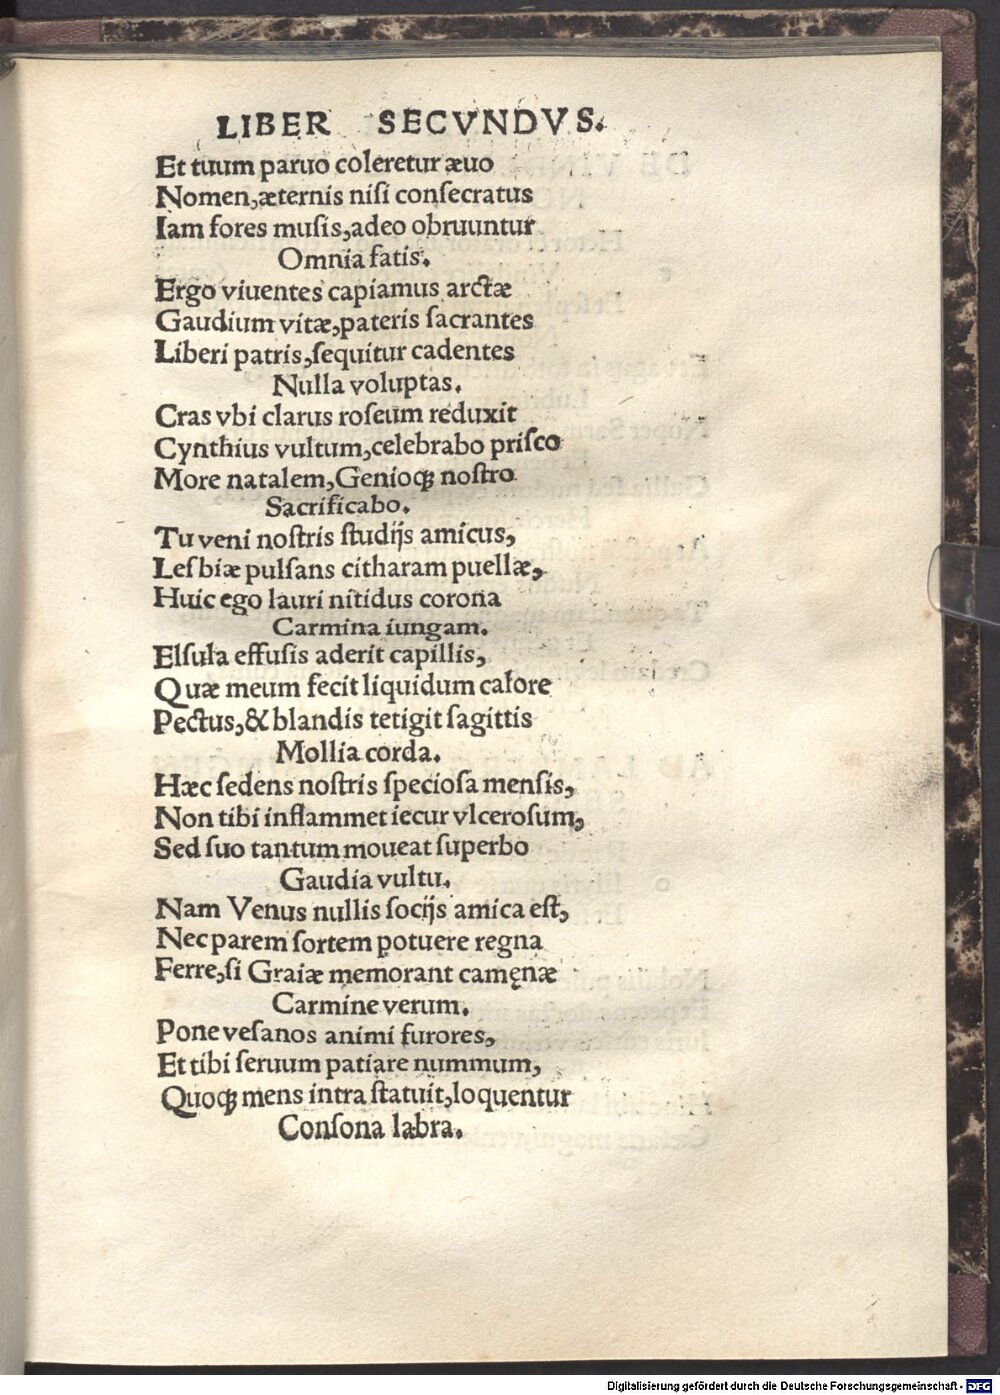 LIBER SECVNDVS.
Et tuum paruo coleretur æuo
Nomen,æternis niſi conſecratus
Iam fores muſis,adeo obruuntur
Omnia fatis.
Ergo viuentes capiamus arctæ
Gaudium vitæ,pateris ſacrantes
Liberi patris,ſequitur cadentes
Nulla voluptas.
Cras vbi clarus roſeum reduxit
Cynthius vultum,celebrabo priſco
More natalem,Genioqꝫ noſtro
Sacrificabo.
Tu veni noſtris ſtudijs amicus,
Lesbiæ pulſans citharam puellæ,
Huic ego lauri nitidus corona
Carmina iungam.
Elſula effuſis aderit capillis,
Quæ meum fecit liquidum calore
Pectus,& blandis tetigit ſagittis
Mollia corda.
Hæc ſedens noſtris ſpecioſa menſis,
Non tibi inflammet iecur vlceroſum,
Sed ſuo tantum moueat ſuperbo
Gaudia vultu.
Nam Venus nullis ſocijs amica eſt,
Nec parem ſortem potuere regna
Ferre,ſi Graiæ memorant camęnæ
Carmine verum.
Pone veſanos animi furores,
Et tibi ſeruum patiare nummum,
Quoqꝫ mens intra ſtatuit,loquentur
Conſona labra.
Digitalisierung gefördert durch die Deutsche Forschungsgemeinschaft - DFG